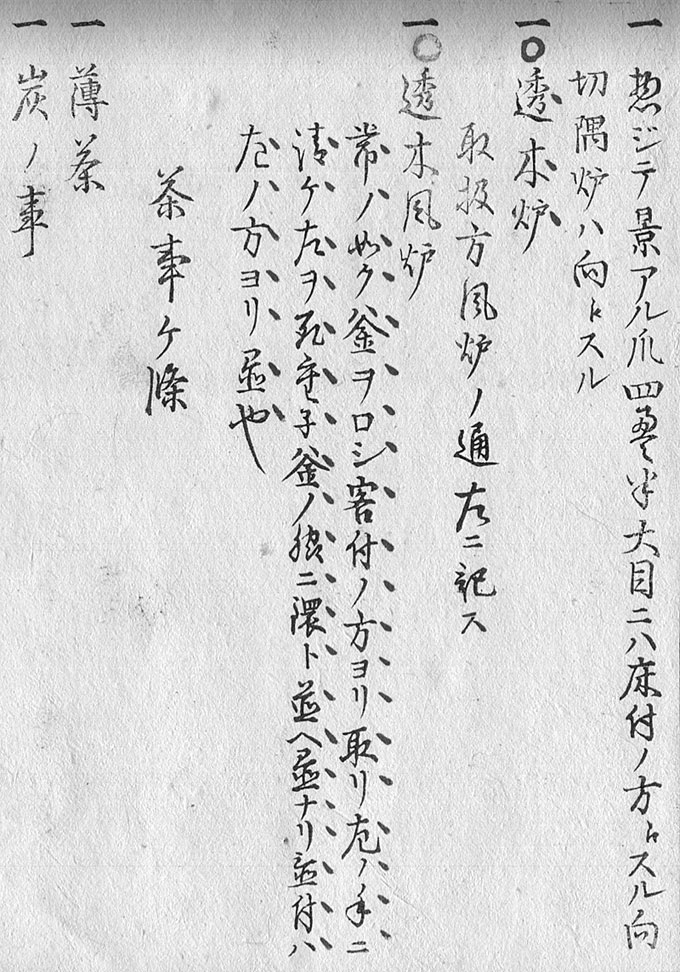 一 惣ジテ景アル爪四畳半大目ニハ床付ノ方トスル向
切隅炉ハ向トスル
一〇透木炉
取扱方風炉ノ通左ニ記ス
一〇透木風炉
常ノ如ク釜ヲロシ客付ノ方ヨリ取リ右ノ手ニ
請ケ左ヲ取重子釜ノ ニ隈ト並ヘ置ナリ並付ハ
左ノ方ヨリ置也
茶事ケ條
一 薄茶
一 炭ノ事